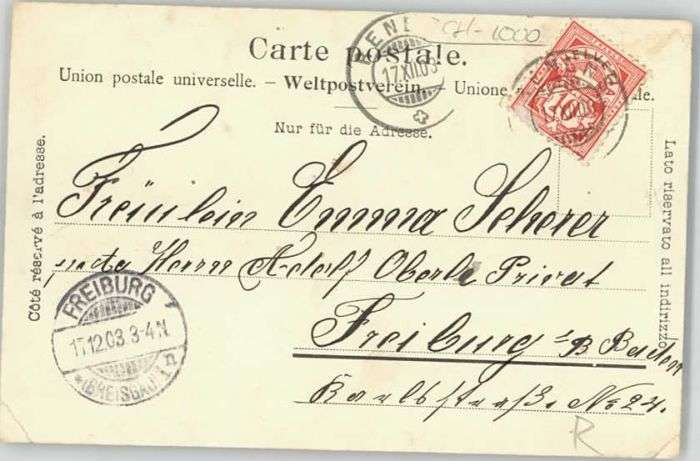 CH-1000
Carte postale.
Union postale universelle. – Weltpostverein. – Unione
le.
Nur für die Adresse.
Côté réservé à l'adresse.
Lato riservato all indirizzo
17.XII.03
HELVETIA
10
Fräulein Emma Scherer
Herrn Adolf Oberle Privat
Freiburg i/B Baden
Karlstraße, No 24.
FREIBURG
17.12.03. 3-4N
(BREISGAU)
R